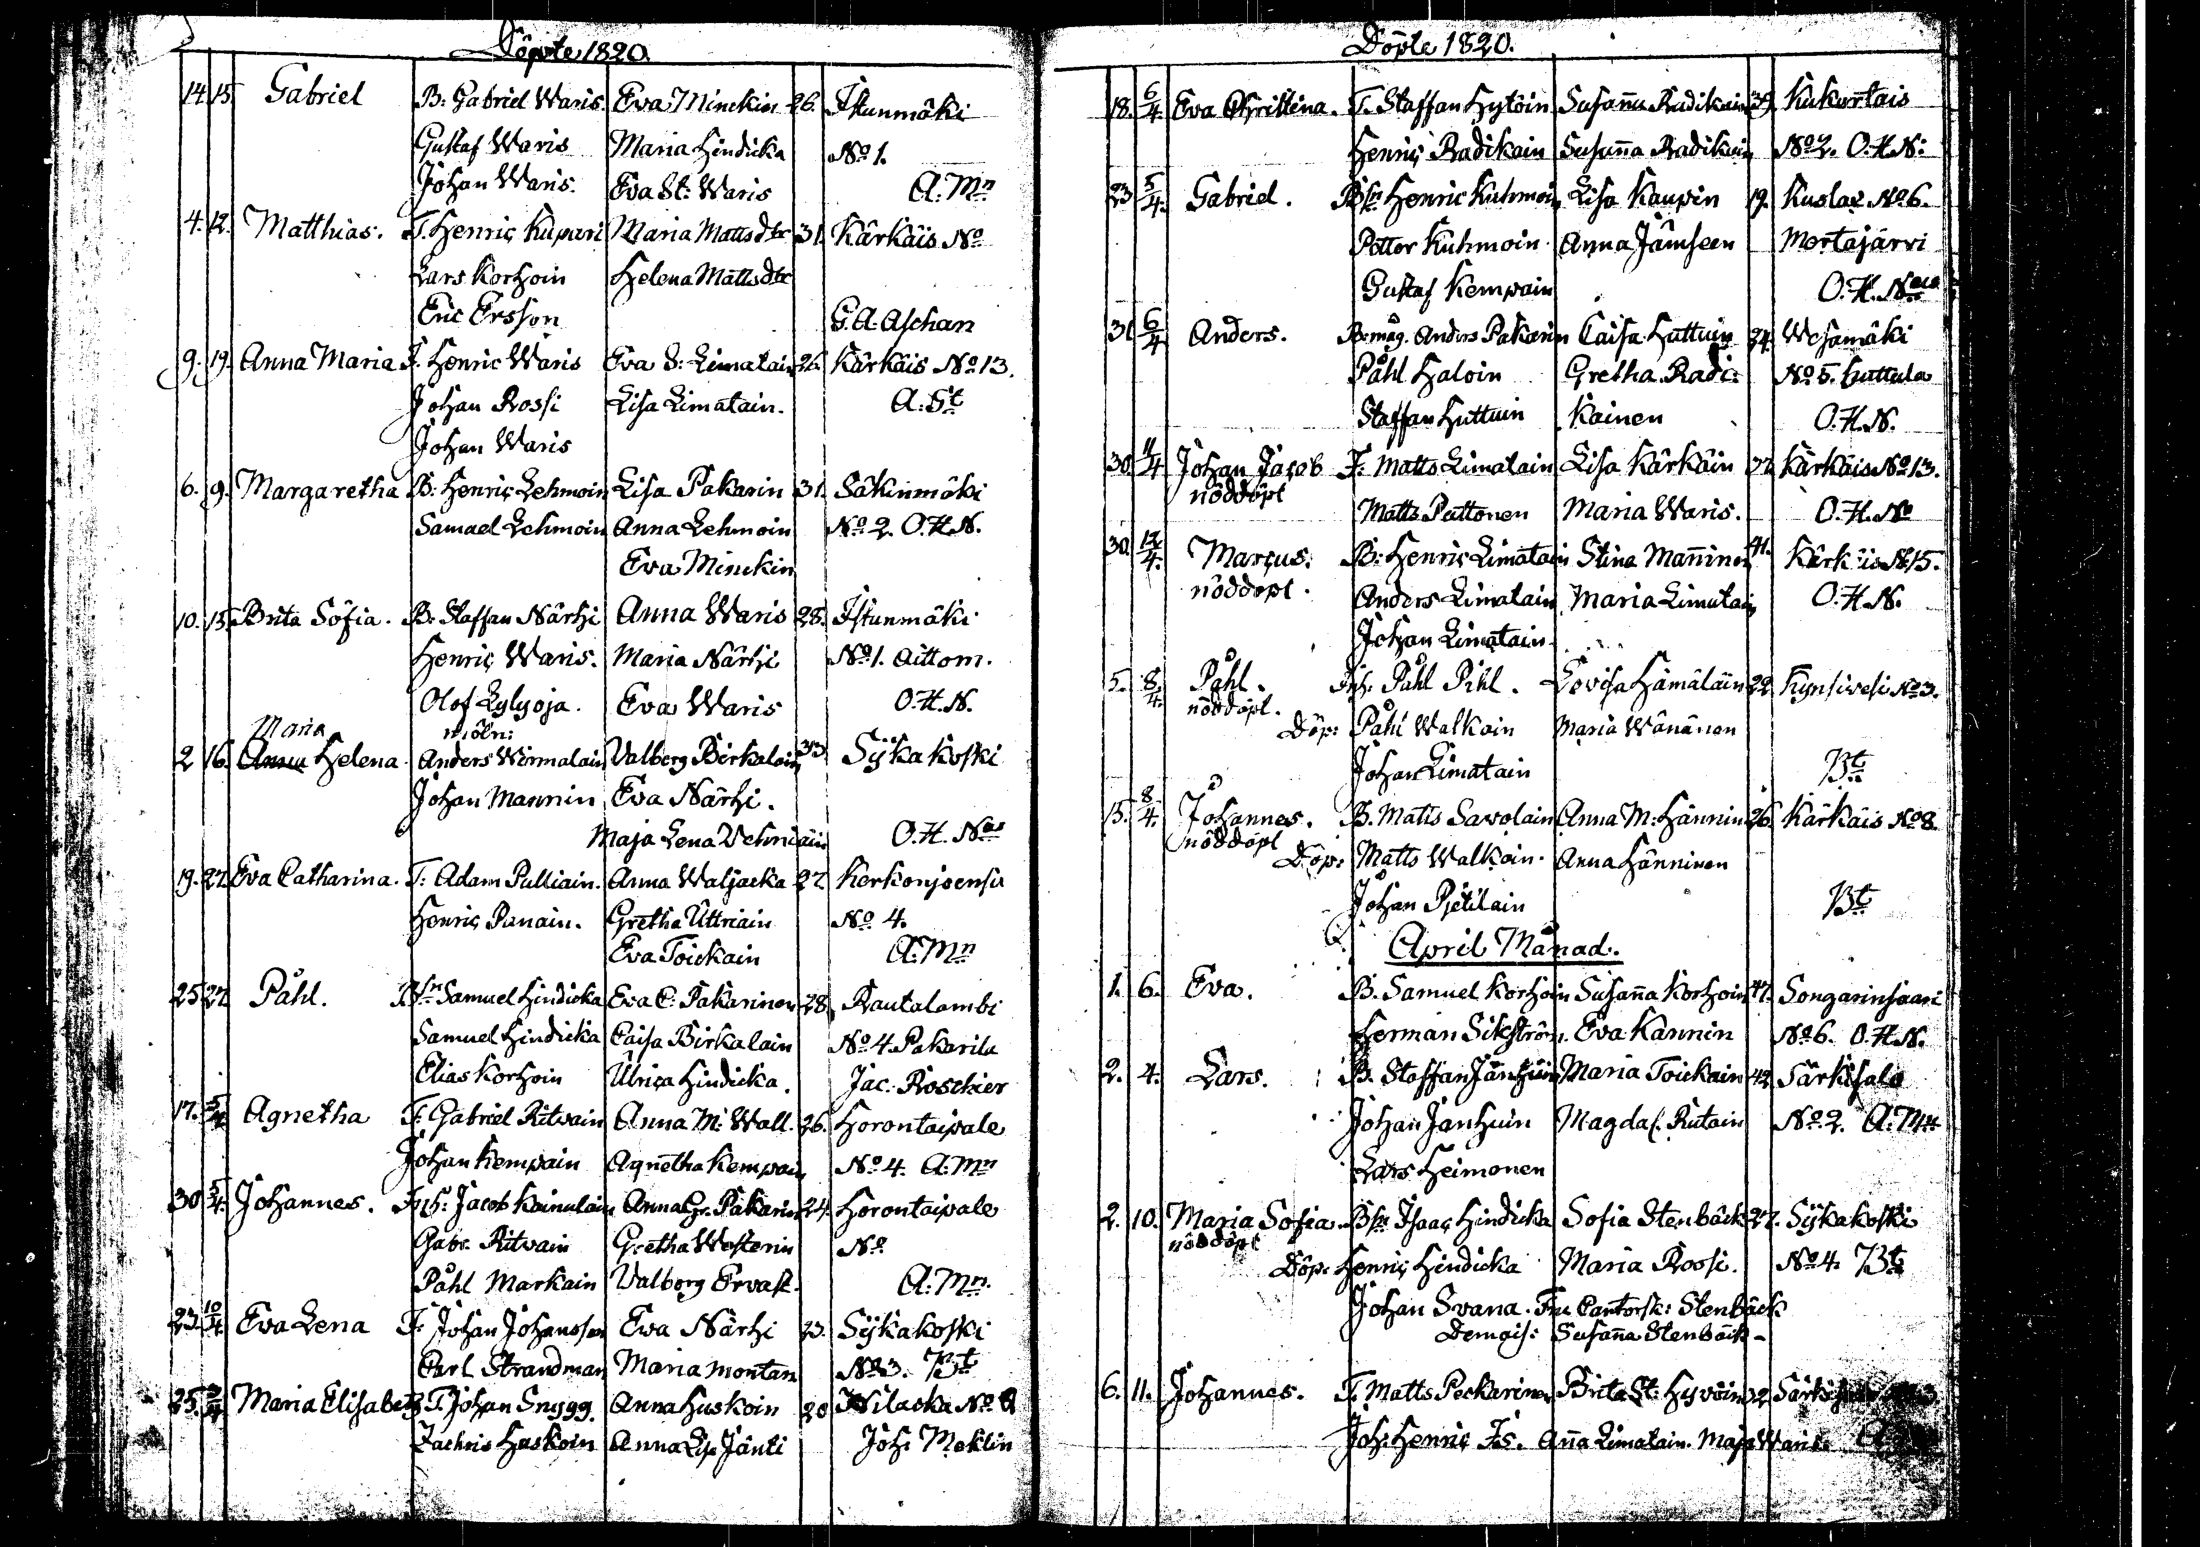 Döpte 1820.
14. 15. Gabriel B: Gabriel Waris. Eva Minckin 26. Istunmäki
Gustaf Waris Maria Hindicka No 1.
Johan Waris. Eva St: Waris A: Mn
4. 12. Matthias. T. Henric Kupari Maria Mattsdtr 31. Kärkäis No
Lars Korhoin Helena Mattsdtr
Eric Ersson G. A. Aschan
9. 19. Anna Maria T. Henric Waris Eva S: Limatain 26. Kärkäis No 13.
Johan Rossi Lisa Limatain. A: St
Johan Waris
6. 9. Margaretha B: Henric Lehmoin Lisa Pakarin 31. Säkinmäki
Samuel Lehmoin Anna Lehmoin No 2. O. H. N.
Eva Minckin
10. 15. Brita Sofia. B: Staffan Närhi Anna Waris 28. Istunmäki
Henric Waris. Maria Närhi No 1. Aittom.
Olof Lylyoja. Eva Waris O. H. N.
Maria möln:
2 16. Anna Helena Anders Wirmalain Valborg Birkalain 33. Sijkakoski
Johan Mannin Eva Närhi.
Maja Lena Vehniäin O. H. Nus
19. 27. Eva Catharina. T: Adam Pulliain. Anna Waljacka 27. Kerkonjoensu
Henric Panain. Gretha Uttriain No 4.
Eva Toickain A: Mn
25 27 Påhl. Bsn Samuel Hindicka Eva C: Pakarinen 28. Rautalambi
Samuel Hindicka Caisa Birkalain No 4 Pakarila
Elias Korhoin Ulrica Hindicka. Jac. Roschier
17. 5/4 Agnetha T: Gabriel Ritvain Anna M: Wall. 26. Horontaipale
Johan Kempain Agnetha Kempain No 4. A: Mn
30 5/4. Johannes. Inh: Jacob Kainulain Anna Gr. Pakarin 24. Horontaipale
Gabr. Ritvain Gretha Westerin No
Påhl Markain Valborg Ervast. A: Mn.
23. 10/4 Eva Lena T: Johan Johansson Eva Närhi 23. Sijkakoski
Carl Strandman Maria Montan No 3. Bt
25. Maria Elisabeth T. Johan Snygg. Anna Huskoin 20 Nilacka No
Zachris Huskoin Anna Lis. Jänti Joh: Meklin
Döpte 1820.
18. 6/4. Eva Christina. T. Staffan Hytöin Susanna Radikain 39. Kukertais
Henric Radikain Susanna Radikain No 2. O. H. N:
23 5/4. Gabriel. Bsn Henric Kuhmoin Lisa Kaupin 19. Kuslax No 6.
Petter Kuhmoin Anna Jämseen Mertajärvi
Gustaf Kempain O. H. Nus
31 6/4 Anders. B: måg. Anders Pakarin Caisa Huttuin 34. Wesamäki
Påhl Haloin Gretha Radi: No 5. Huttula
Staffan Huttuin kainen O. H. N.
30. 11/4 Johan Jacob T: Matts Limatain Lisa Kärkäin 37. Kärkäis No 13.
nöddöpt
Matts Puttonen Maria Waris. O. H. N
30. 12/4. Marcus. B: Henric Limatain Stina Manninen 41. Kärkäis No 15.
nöddöpt. Anders Limatain Maria Limatain O. H. N.
Johan Limatain
5. 8/4. Påhl. Inh: Påhl Pihl. Lovisa Hämäläin 22. Kynsivesi No 3.
nöddöpt.
Döp: Påhl Walkain Maria Wänänen
Johan Limatain Bt
15. 8/4. Johannes. B. Matts Savolain Anna M: Hännin 26. Kärkäis No 8.
nöddöpt
Döp: Matts Walkain. Anna Hänninen
Johan Pietilain Bt
April Månad.
1. 6. Eva. B. Samuel Korhoin Susanna Korhoin 47. Songarinsaari
Herman Sikström. Eva Kannin No 6. O. H. N.
2. 4. Lars. B. Staffan Janhuin Maria Toickain 42. Särkisalo
Johan Janhuin Magdal. Rutain No 2. A: Mn
Lars Heimonen
2. 10. Maria Sofia Bsn Isaac Hindicka Sofia Stenbäck 27. Sijkakoski
nöddöpt
Döp: Henric Hindicka Maria Rossi. No 4. Bt
Johan Svana. Fru Cantorsk: Stenbäck
Demois: Susanna Stenbäck
6. 11. Johannes. T. Matts Peckarinen Brita St: Hyvöin 32.
Joh: Henric Is. Anna Limatain. Maja Waris.